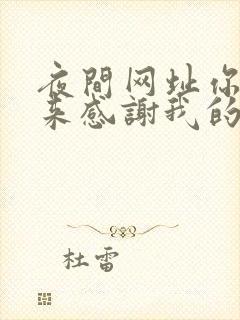 夜間网址你
来感謝我的
杜雷